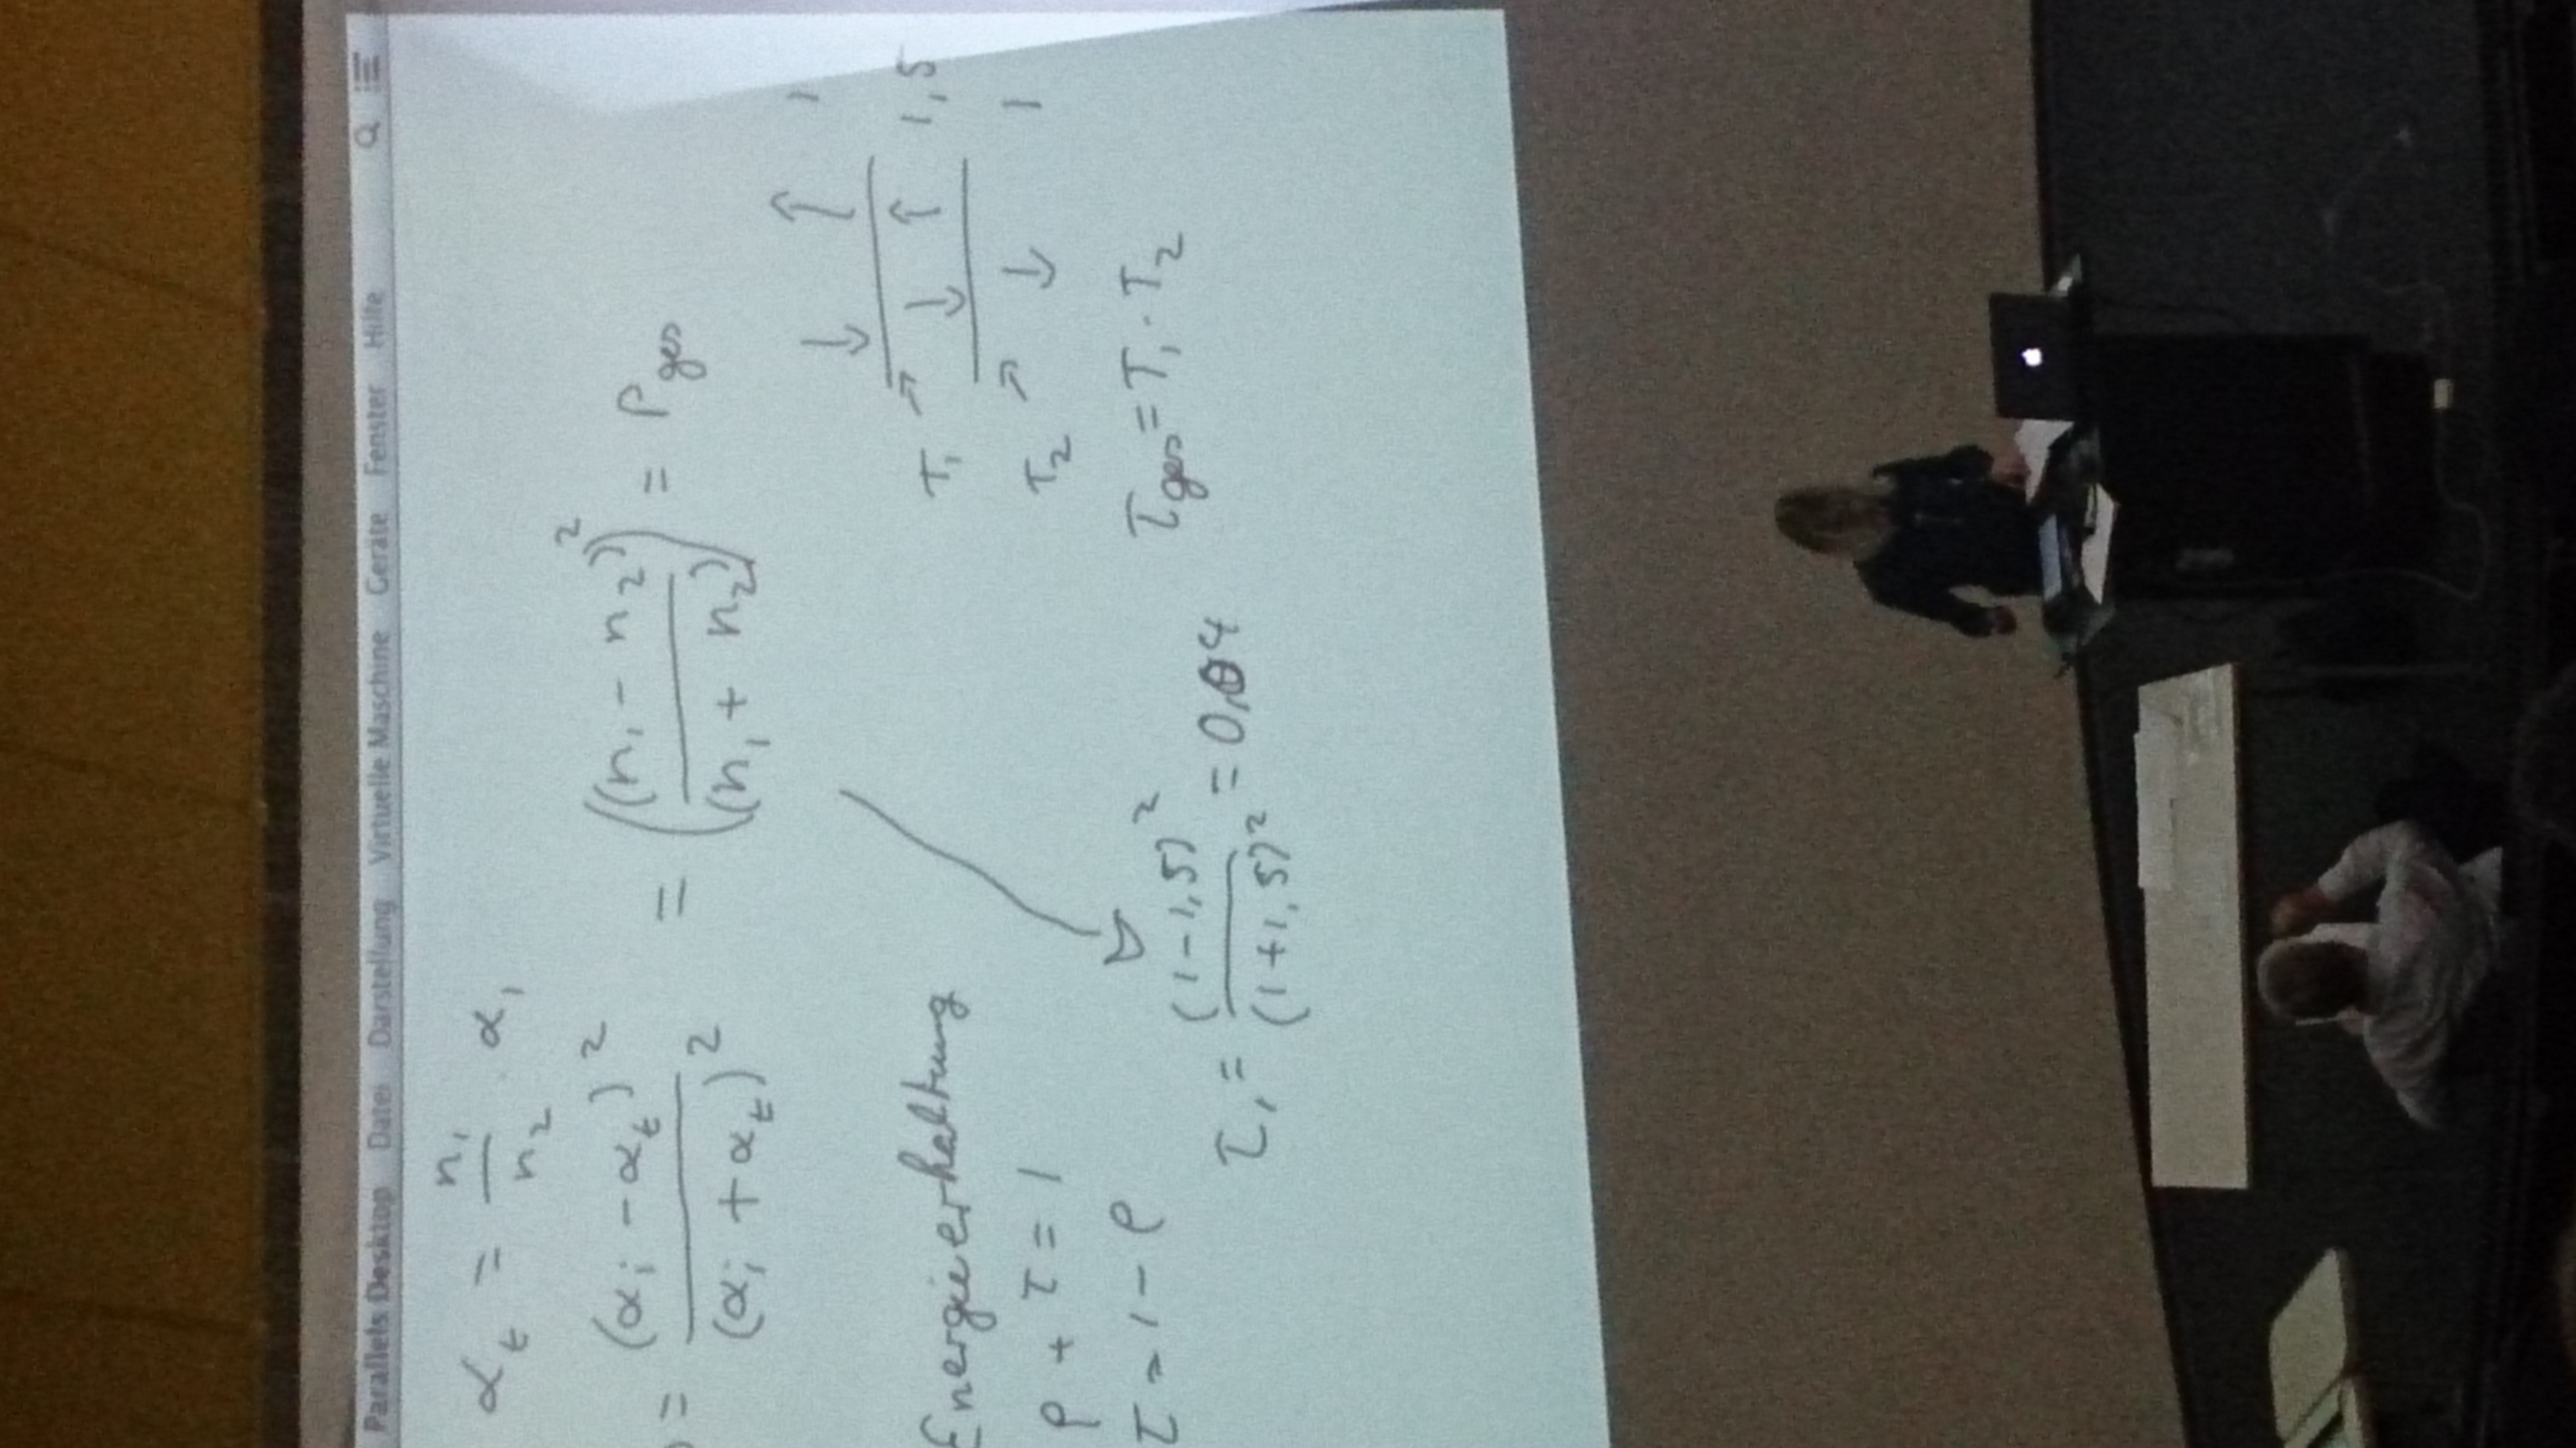 Parallels Desktop Datei Darstellung Virtuelle Maschine Geräte Fenster Hilfe
α_t = n₁/n₂ · α₁
= (αᵢ - α_t)²/(αᵢ + α_t)² = ((n₁ - n₂)/(n₁ + n₂))² = ρ_ges
Energieerhaltung
ρ + τ = 1
τ = 1 - ρ
τ₁ = (1-1,5)²/(1+1,5)² = 0,04
1
τ₁ 1,5
τ₂ 1
τ_ges = τ₁ · τ₂